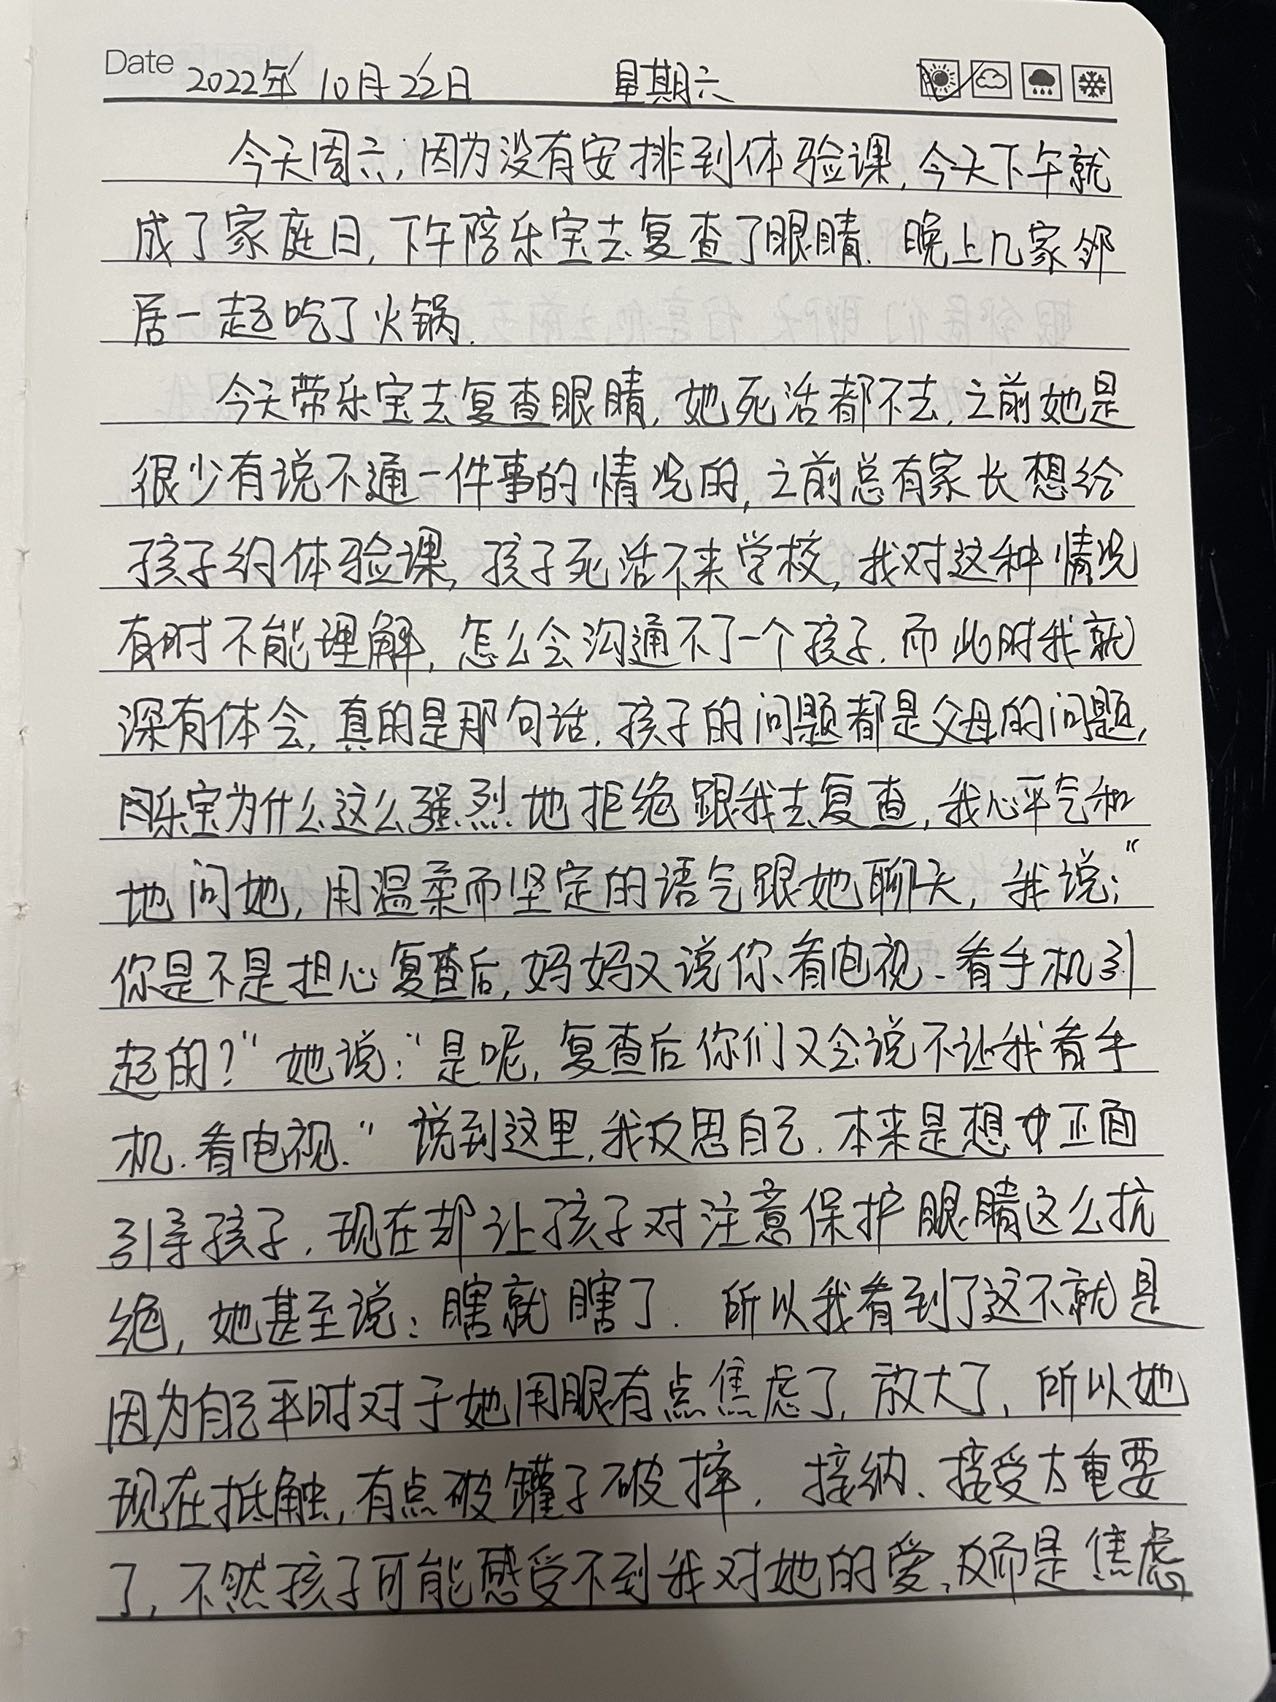 Date 2022年10月22日 星期六
今天周六,因为没有安排到体验课,今天下午就
成了家庭日,下午陪乐宝去复查了眼睛.晚上几家邻
居一起吃了火锅.
今天带乐宝去复查眼睛,她死活都不去,之前她是
很少有说不通一件事的情况的,之前总有家长想给
孩子约体验课,孩子死活不来学校,我对这种情况
有时不能理解,怎么会沟通不了一个孩子.而此时我就
深有体会,真的是那句话.孩子的问题都是父母的问题,
问乐宝为什么这么强烈地拒绝跟我去复查,我心平气和
地问她,用温柔而坚定的语气跟她聊天,我说:“
你是不是担心复查后,妈妈又说你看电视、看手机引
起的?”她说:“是呢,复查后你们又会说不让我看手
机.看电视.”说到这里,我反思自己.本来是想要正面
引导孩子.现在却让孩子对注意保护眼睛这么抗
绝,她甚至说:瞎就瞎了.所以我看到了这不就是
因为自己平时对于她用眼有点焦虑了,放大了,所以她
现在抵触,有点破罐子破摔.接纳、接受太重要
了,不然孩子可能感受不到我对她的爱,反而是焦虑